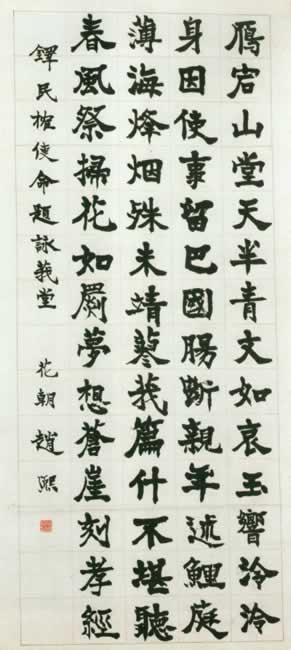 鴈宕山堂天半青文如哀玉響泠泠
身因使事留巴國腸斷親年述鯉庭
薄海烽烟殊未靖蓼莪篇什不堪聽
春風祭掃花如罽夢想蒼崖刻孝經
鐸民使命題詠莪堂 花朝趙熙